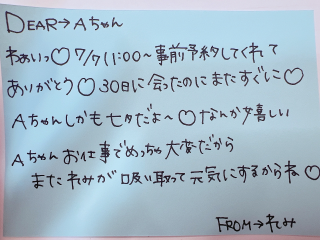 DEAR→Aちゃん
ねぇいっ♡ 7/7 11:00~事前予約してくれて
ありがとう♡30日に会ったのにまたすぐに♡
Aちゃんしかも七夕だよ~♡なんか嬉しい
Aちゃんお仕事でめっちゃ大変だから
またれみが吸い取って元気にするからね♡
FROM→れみ